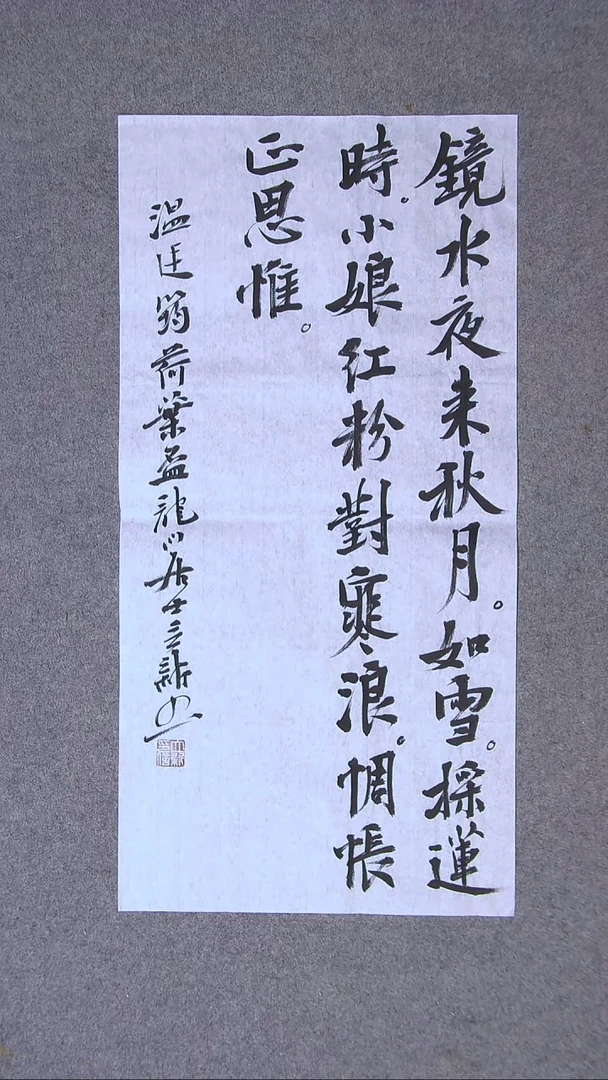 鏡水夜来秋月。如雪。採蓮
時。小娘紅粉對寒浪。惆悵
正思惟。
温廷筠荷葉盃龍居士